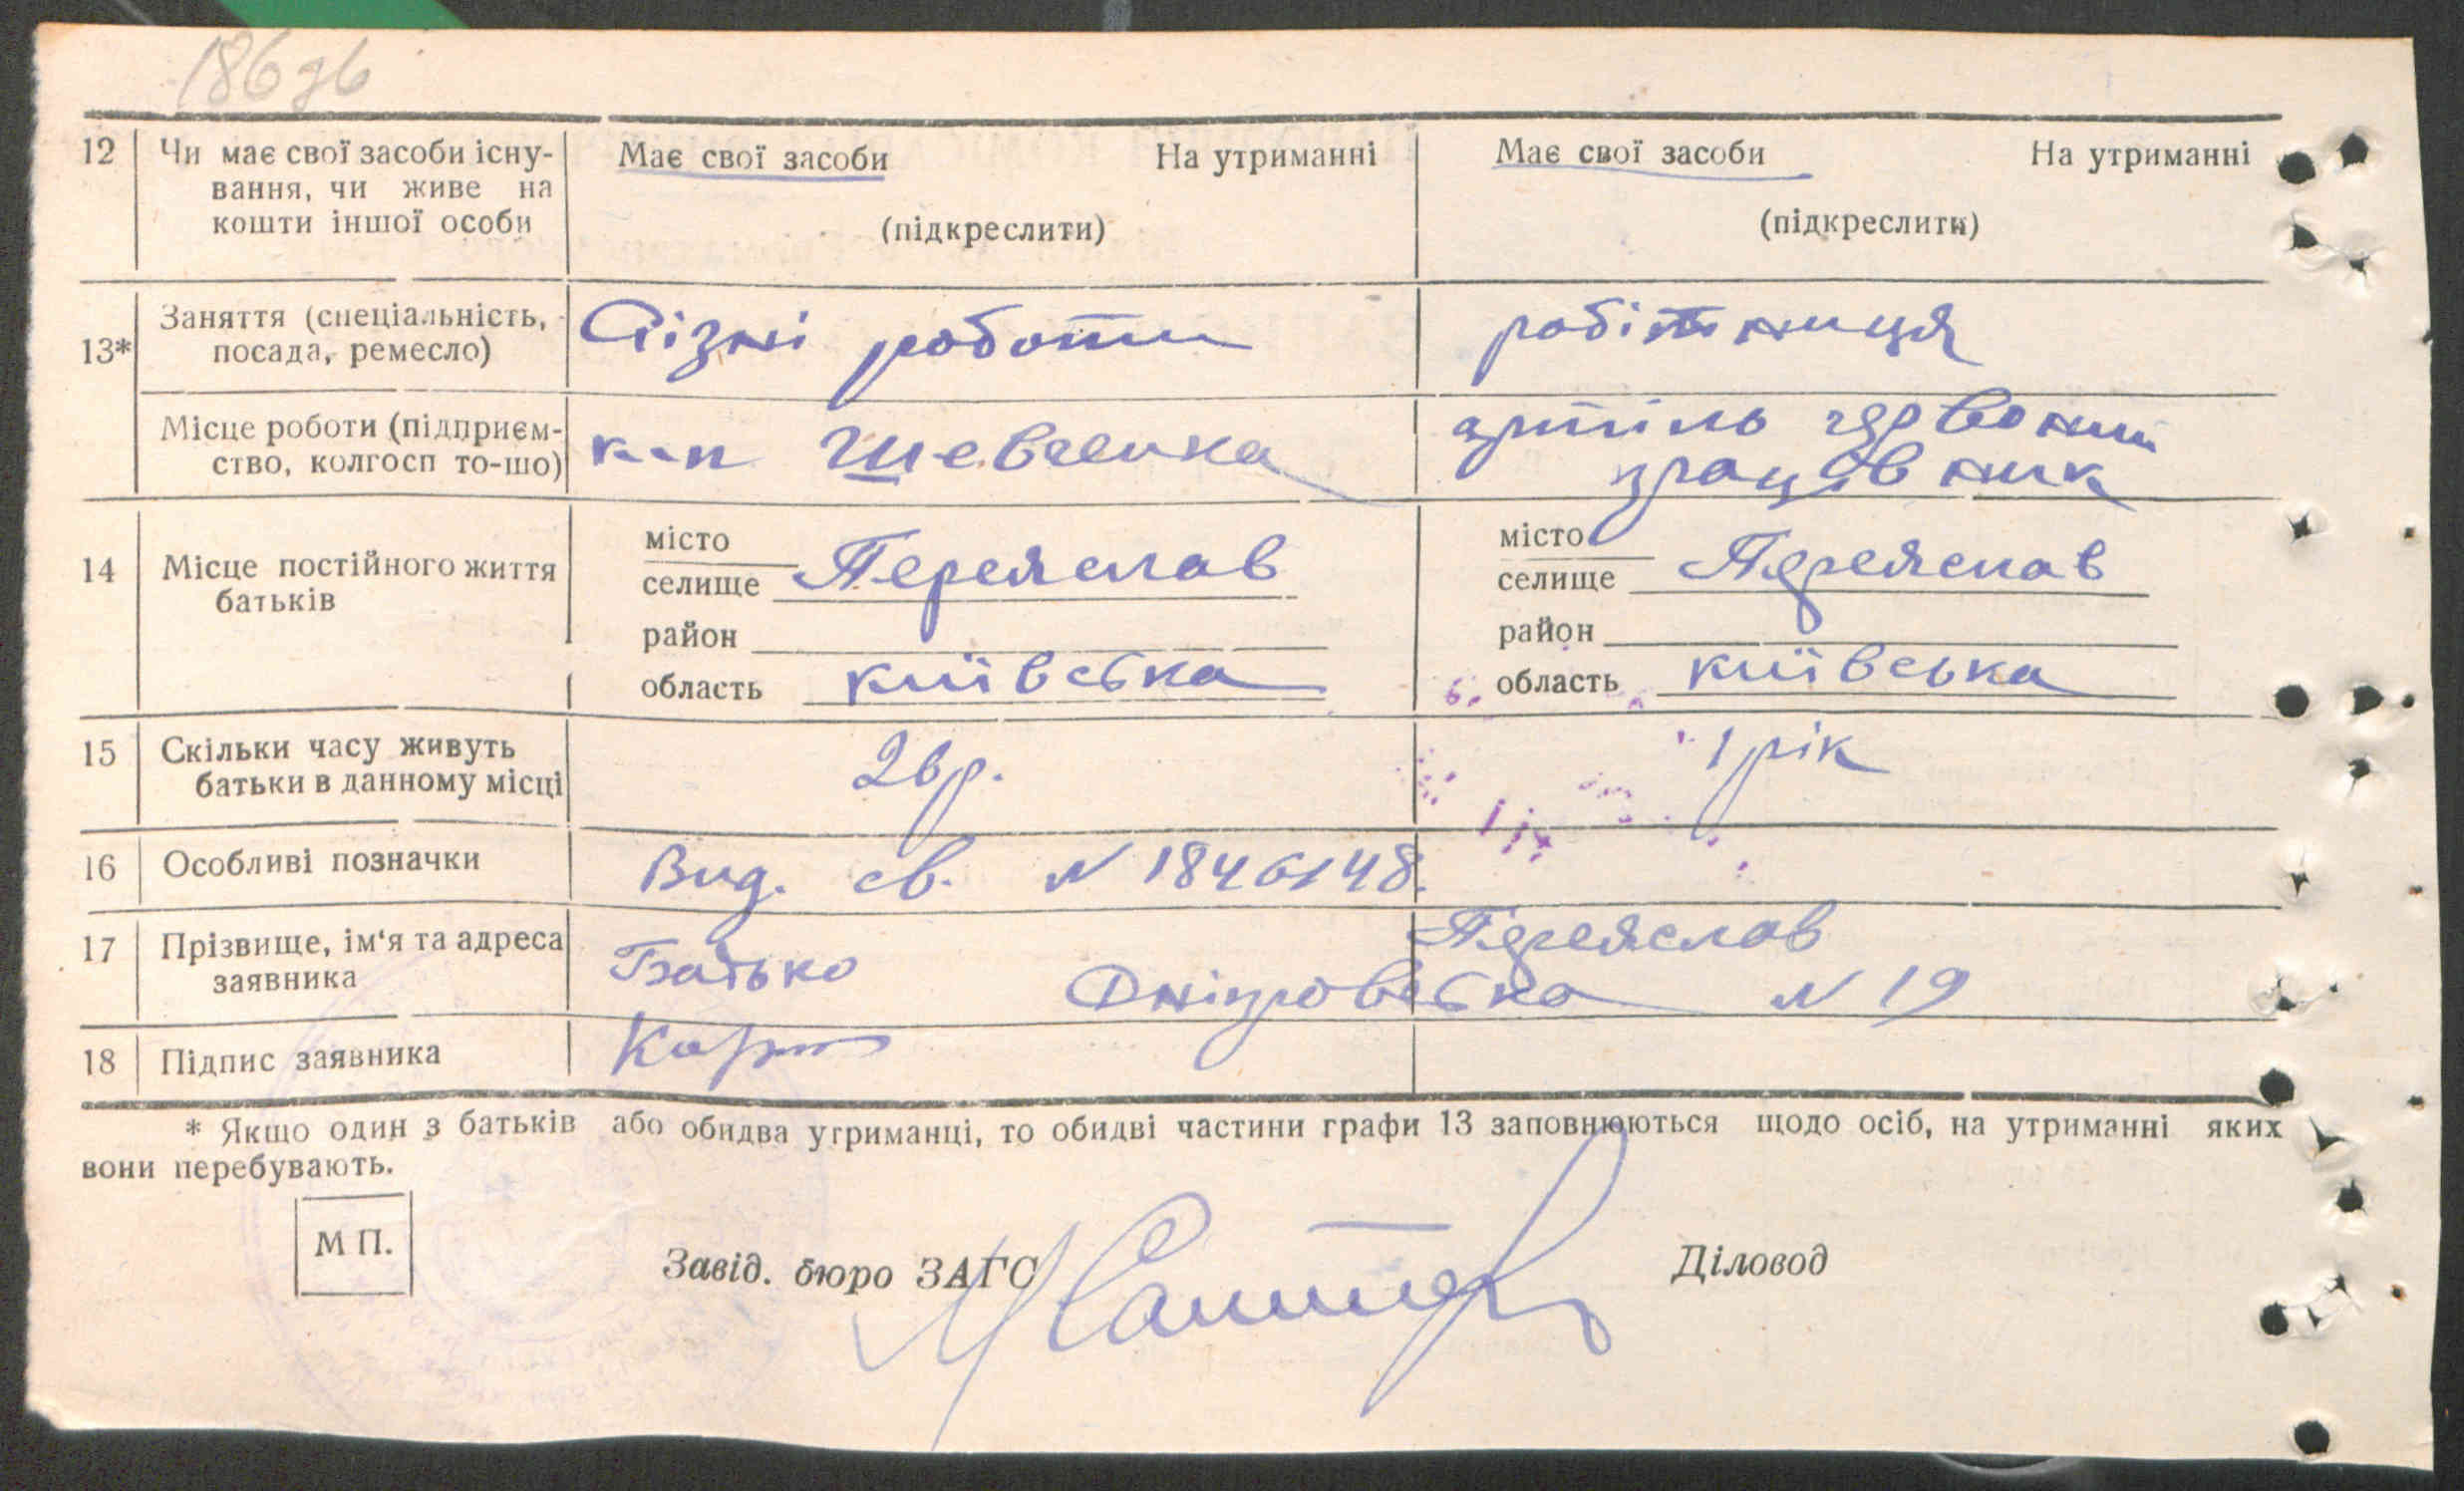 186зв
12 Чи має свої засоби існу- Має свої засоби На утриманні Має свої засоби На утриманні
вання, чи живе на
кошти іншої особи (підкреслити) (підкреслити)
13* Заняття (спеціальність, Різні роботи робітниця
посада, ремесло)
Місце роботи (підприєм- к-п Шевченка артіль червоний
ство, колгосп то-що) працівник
14 Місце постійного життя місто Переяслав місто Переяслав
батьків селище селище
район район
область київська область київська
15 Скільки часу живуть 26р. 1 рік
батьки в данному місці
16 Особливі позначки Вид. св. N 1846148.
17 Прізвище, ім'я та адреса Батько Переяслав
заявника Дніпровська N 19
18 Підпис заявника
* Якщо один з батьків або обидва утриманці, то обидві частини графи 13 заповнюються щодо осіб, на утриманні яких
вони перебувають.
М П.
Завід. бюро ЗАГС Діловод